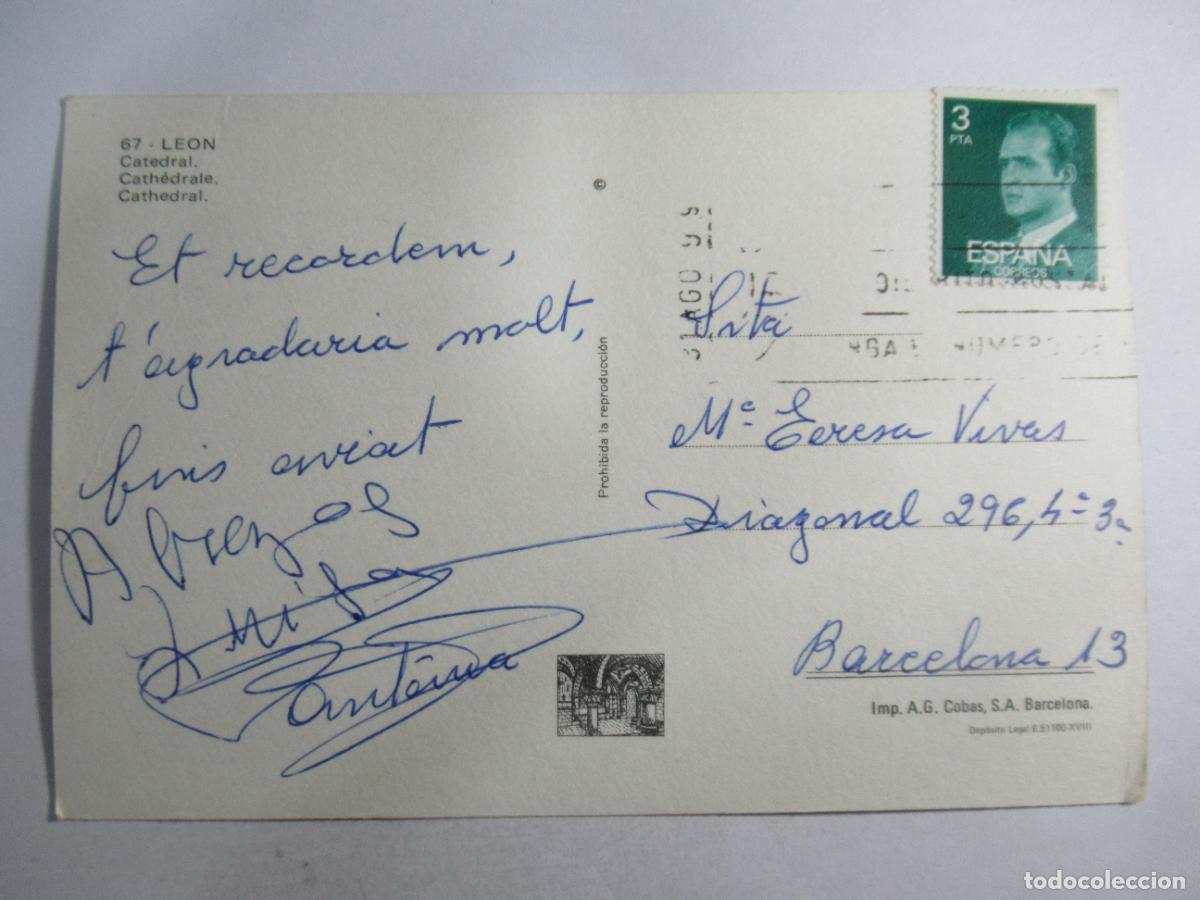 67 - LEON
Catedral.
Cathédrale.
Cathedral.
Et recordem,
t'agradaria molt,
fins aviat
Abrazos
Luisa
©
Prohibida la reproducción
3
PTA
ESPAÑA
CORREOS
31 AGO
NUMERO DE
Srta
Mª Teresa Vivas
Diagonal 296, 4º 3ª
Barcelona 13
Imp. A.G. Cobas, S.A. Barcelona.
Depósito Legal B.51100-XVIII
todocoleccion